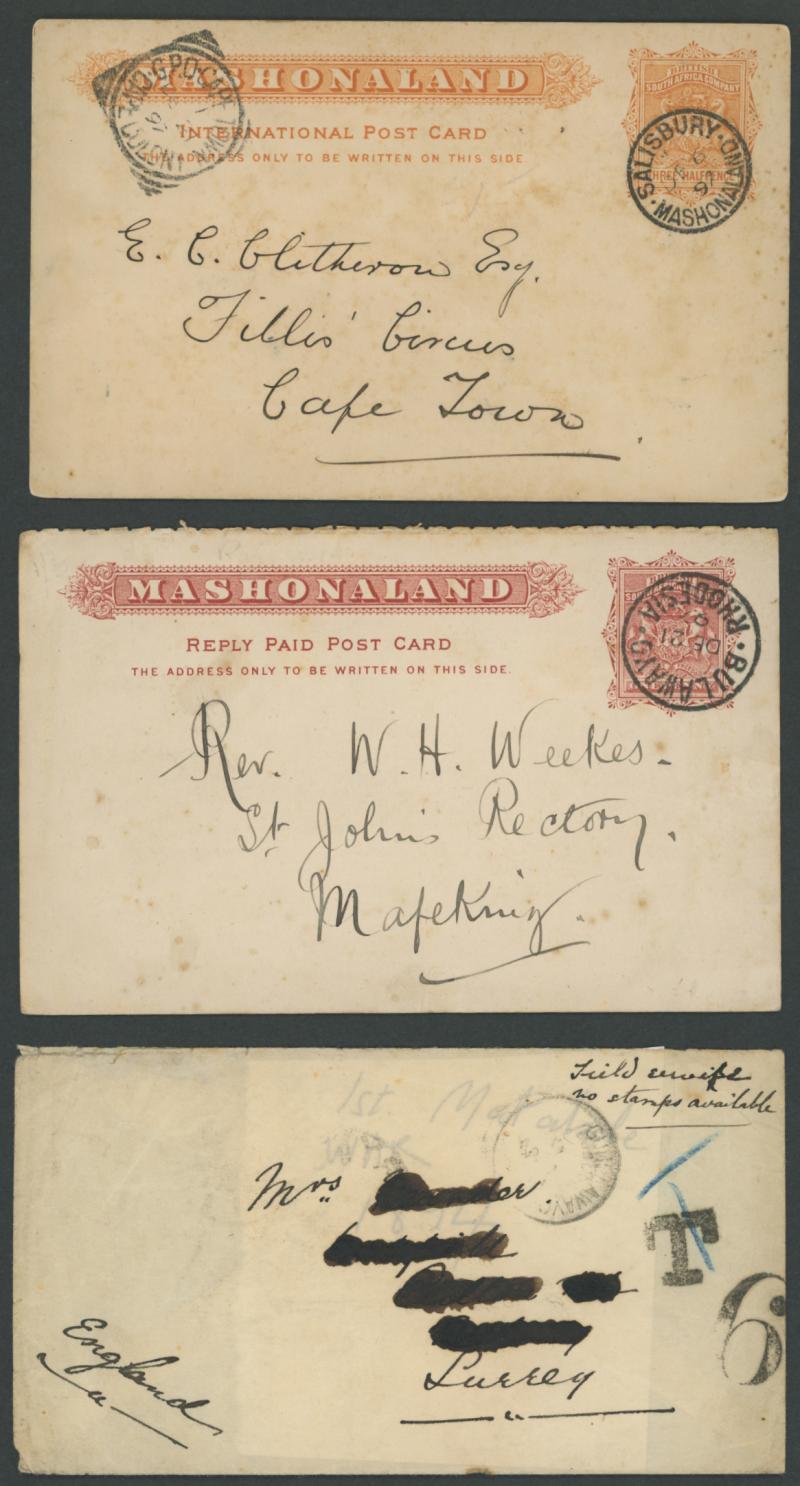 MASHONALAND
INTERNATIONAL POST CARD
THE ADDRESS ONLY TO BE WRITTEN ON THIS SIDE
SOUTH AFRICA COMPANY
THREE HALFPENCE
G.P.O. CAPE TOWN
COLONY
97
SALISBURY
MASHONALAND
97
E. C. Clitherow Esq.
Fillis' Circus
Cape Town
MASHONALAND
REPLY PAID POST CARD
THE ADDRESS ONLY TO BE WRITTEN ON THIS SIDE.
BULAWAYO
RHODESIA
DE 21
Rev. W. H. Weekes.
St Johns Rectory.
Mafeking.
Field service
no stamps available
1st Matabele
War
Mrs
Surrey
England
T
6